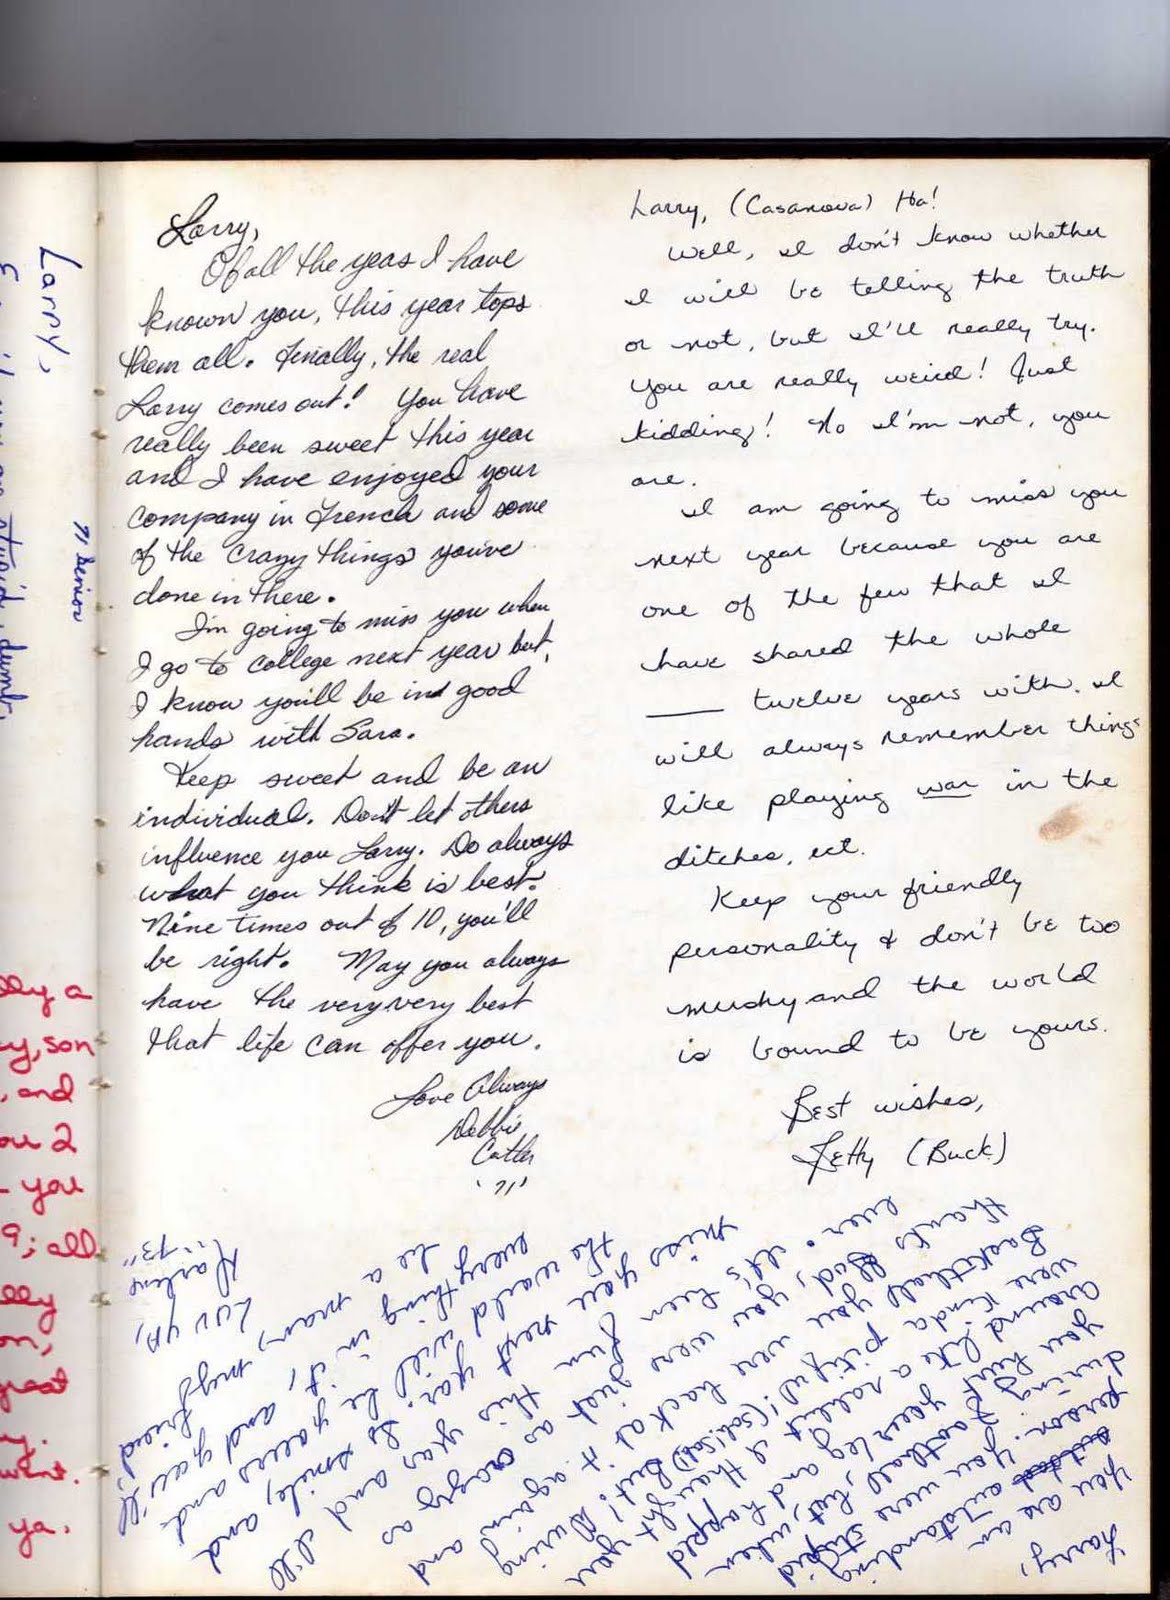 Larry,
Of all the yeas I have
known you, this year tops
them all. Finally, the real
Larry comes out! You have
really been sweet this year
and I have enjoyed your
company in French and some
of the crazy things you've
done in there.
I'm going to miss you when
I go to college next year but,
I know you'll be in good
hands with Sara.
Keep sweet and be an
individual. Don't let others
influence you Larry. Do always
what you think is best.
Nine times out of 10, you'll
be right. May you always
have the very, very best
that life can offer you.
Love Always
Debbie
'71'
Larry, (Casanova) Ha!
Well, I don't know whether
I will be telling the truth
or not, but I'll really try.
You are really weird! Just
kidding! No I'm not, you
are.
I am going to miss you
next year because you are
one of the few that I
have shared the whole
____ twelve years with. I
will always remember things
like playing war in the
ditches, ect.
Keep your friendly
personality & don't be too
mushy and the world
is bound to be yours.
Best wishes,
(Buck)
Larry,
you are an
outstanding
person.
during Football, but, when
you hurt your leg and hopped
around like a rabbit I thought
were kinda pitiful! (Sob! Sob!) But! During
Basketball you were back at it again and
thanks were just as crazy as
ever. It's been fun this year and I'll
miss you next year! So smile, and
the world will be yours and
everything in it, and you'll
be a man, my friend!
Luv ya,
"73"
Larry,
71 Senior
stupid, dumb,
a
son
, and
2
you
9; all
ya.